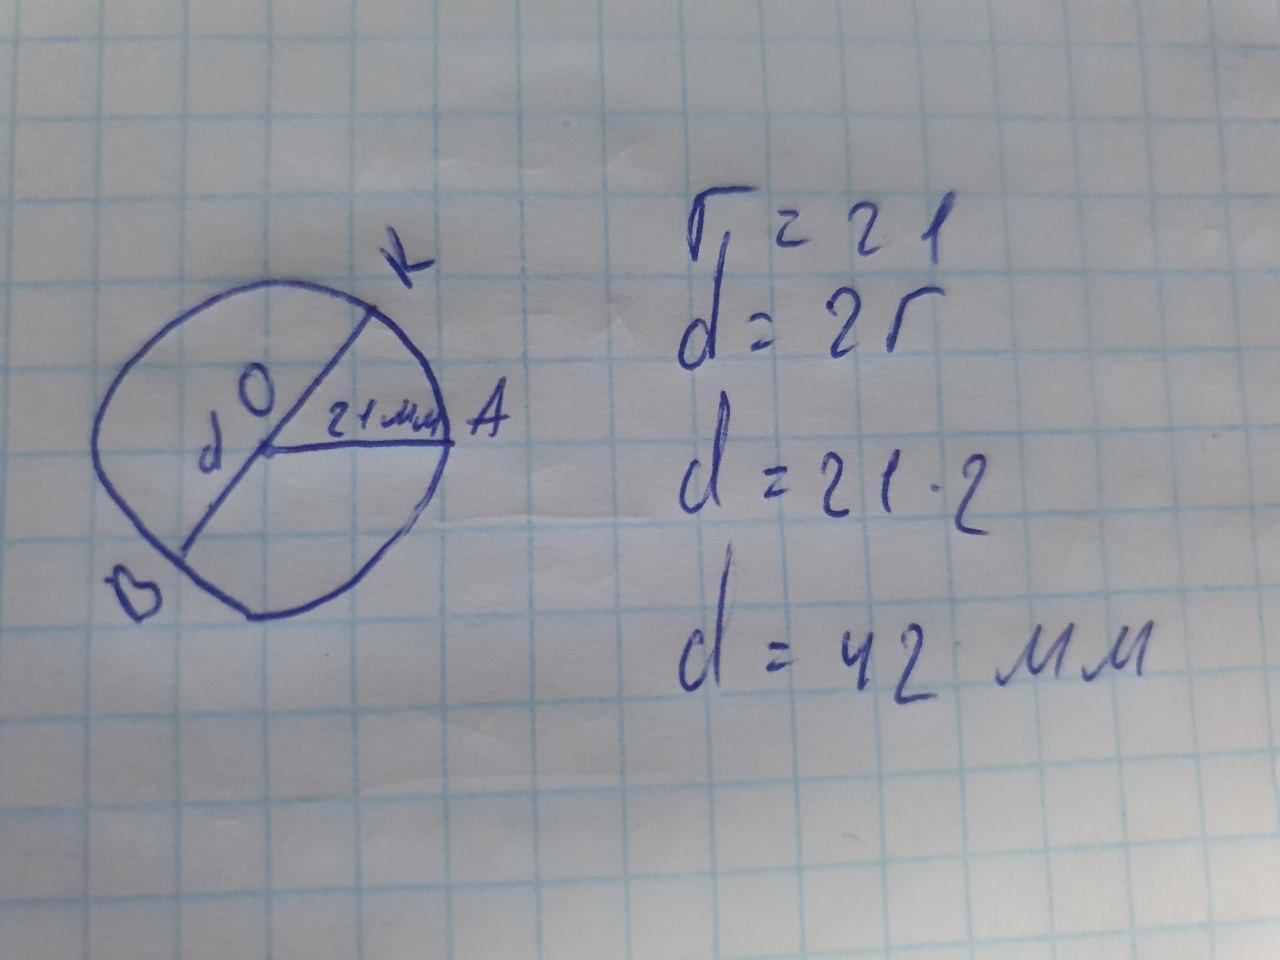 K
O
d
21мм
A
B
r = 21
d = 2r
d = 21 · 2
d = 42 мм